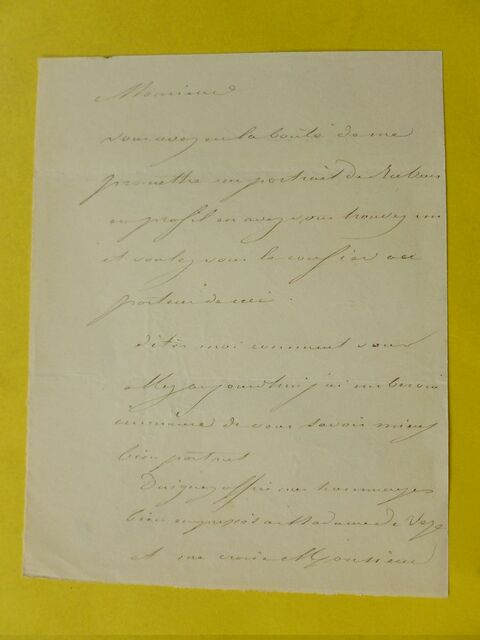 Monsieur
vous avez eu la bonté de me
promettre un portrait de Rubens
en profil en avez vous trouvez un
et voulez vous le confier au
porteur de ceci.
dites moi comment vous
allez aujourdhui j'ai un besoin
de vous savoir mieux
bien portant
Daignez offrir mes hommages
bien empressés a Madame de
et me croire Monsieur